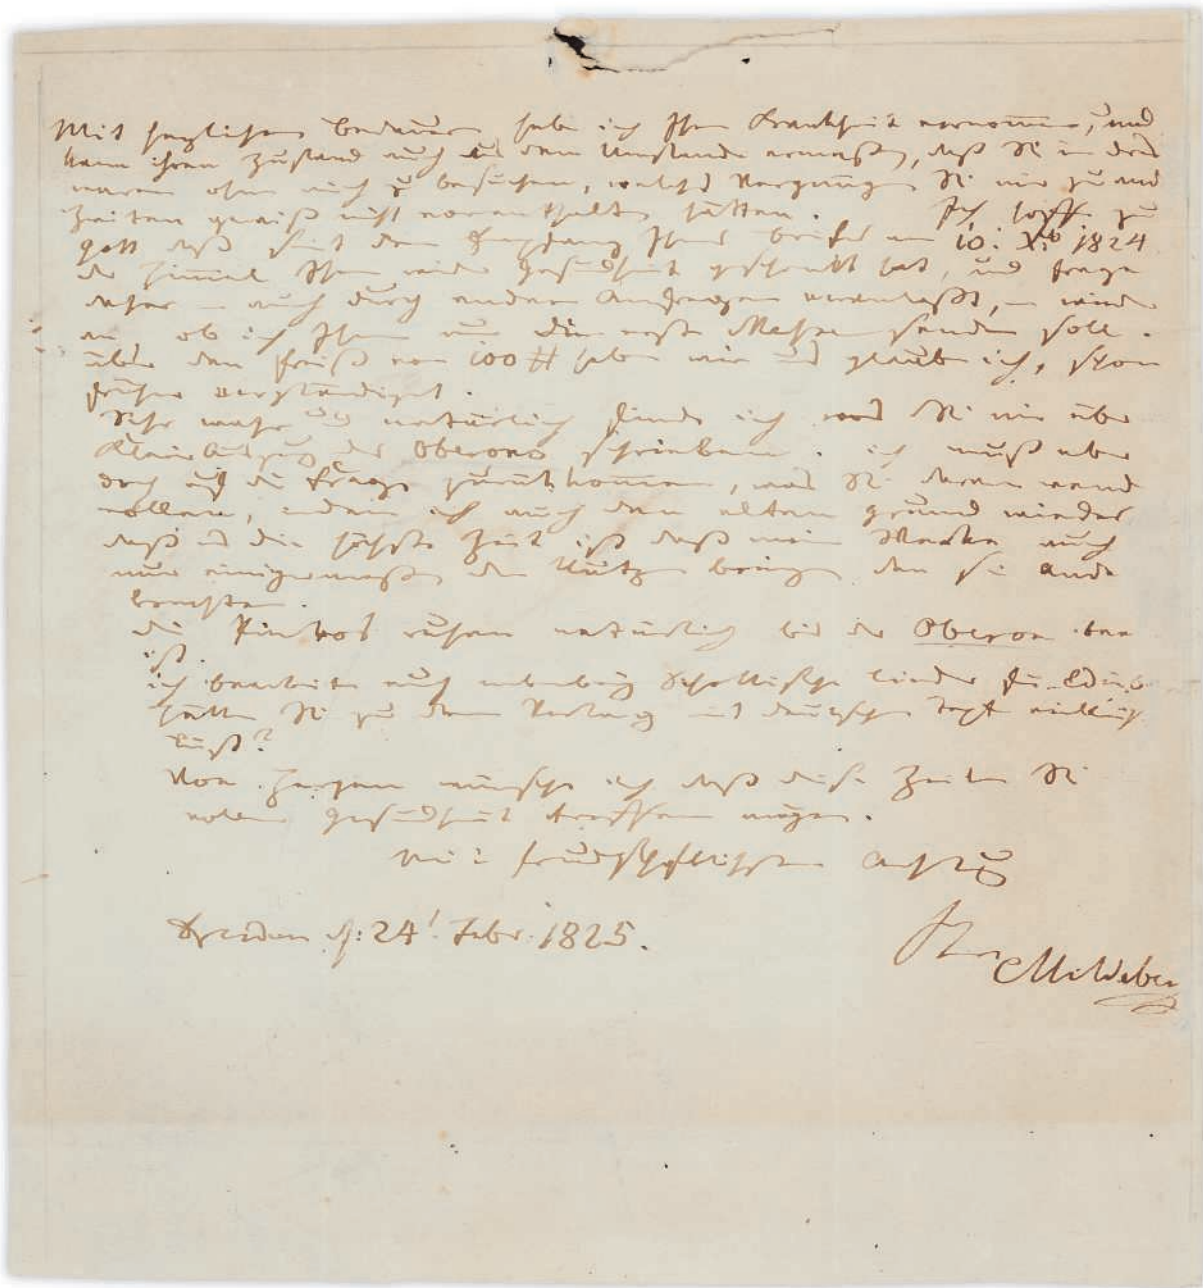 Mit herzlichem Bedauern habe ich Ihre Krankheit vernommen, und
kann ihren Zustand auch aus dem Umstande ermeßen, daß Sie in Dresd
waren ohne mich zu besuchen, welches Vergnügen Sie mir zu and
Zeiten gewiß nicht vorenthalten hätten. Ich hoffe zu
Gott daß seit dem Empfang Ihres Briefes vom 10: Xb 1824
der Himmel Ihnen wieder Gesundheit geschenkt hat, und frage
daher – auch durch andere Anfragen veranlaßt, – wieder
an, ob ich Ihnen nun die erste Messe senden soll.
über den Preiß von 100 # haben wir uns glaube ich, schon
früher verständigt.
Sehr wahr und natürlich finde ich was Sie mir über
KlavierAuszug des Oberons schrieben. ich muß aber
doch auf die Frage zurükkommen, was Sie daran wend
wollen, indem ich auch den alten Grund wieder
daß es die höchste Zeit ist daß meine Werke auch
mir einigermaßen den Nutzen bringen den sie Ande
brachten.
die Pintos ruhen natürlich bis der Oberon been
ist.
ich bearbeite auch nebenbey Schottische Lieder für Edinb
hätten Sie zu dem Verlag mit deutschem Text vielleicht
Lust?
Von Herzen wünsche ich daß diese Zeilen Sie
voller Gesundheit treffen mögen.
Mit freundschaftlichster Achtung
Dresden d: 24! Febr. 1825.
Ihr
CMvWeber